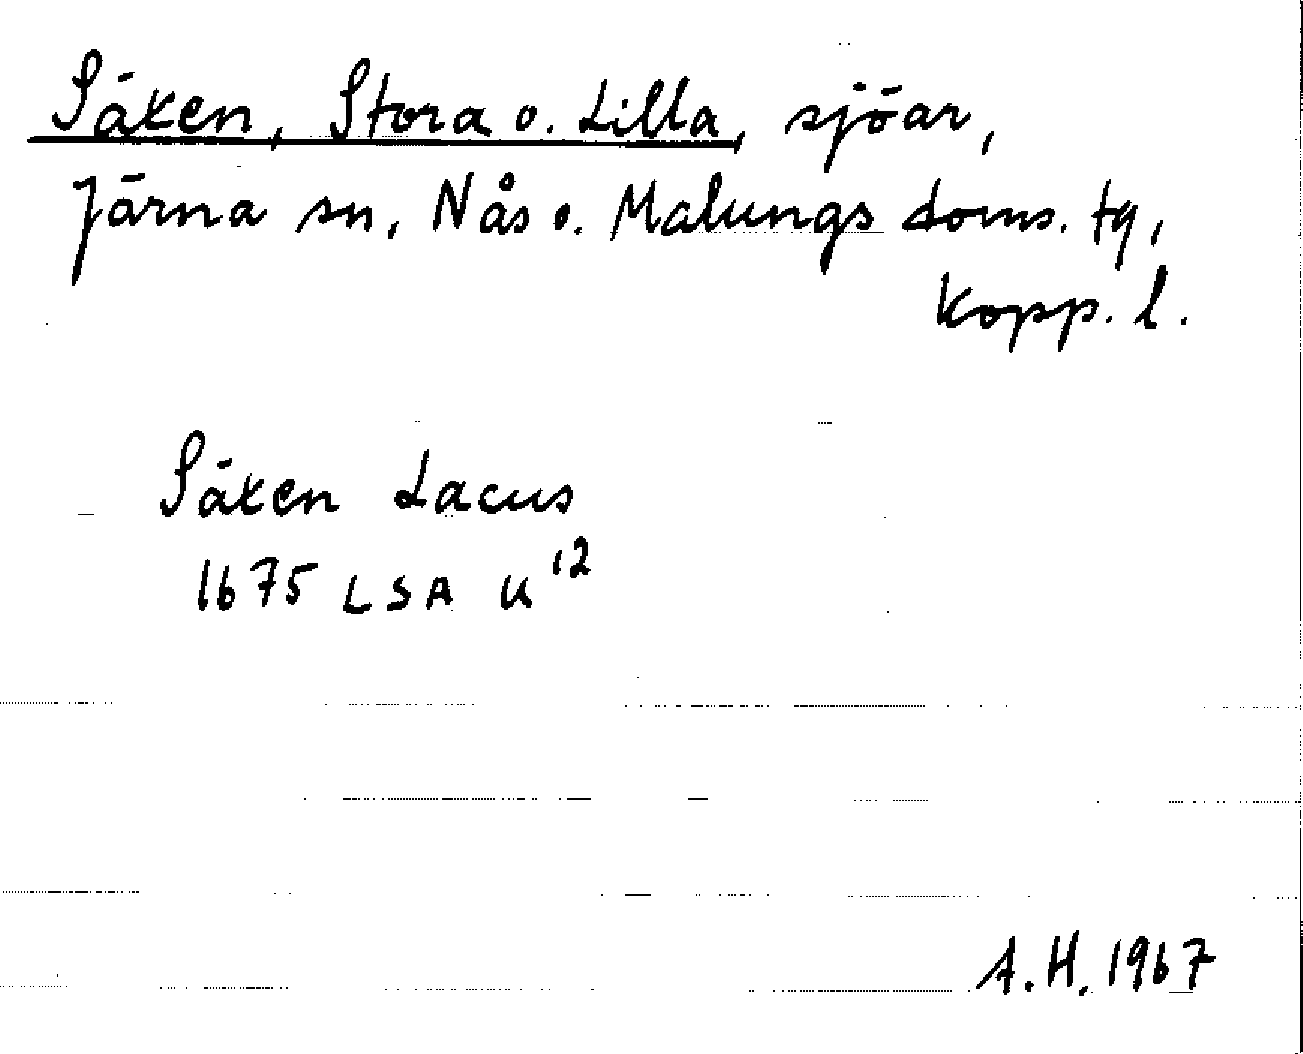 Säken, Stora o. Lilla, sjöar,
Järna sn, Nås o. Malungs doms. tg,
Kopp. l.
Säken Lacus
1675 LSA U 12
A.H. 1967